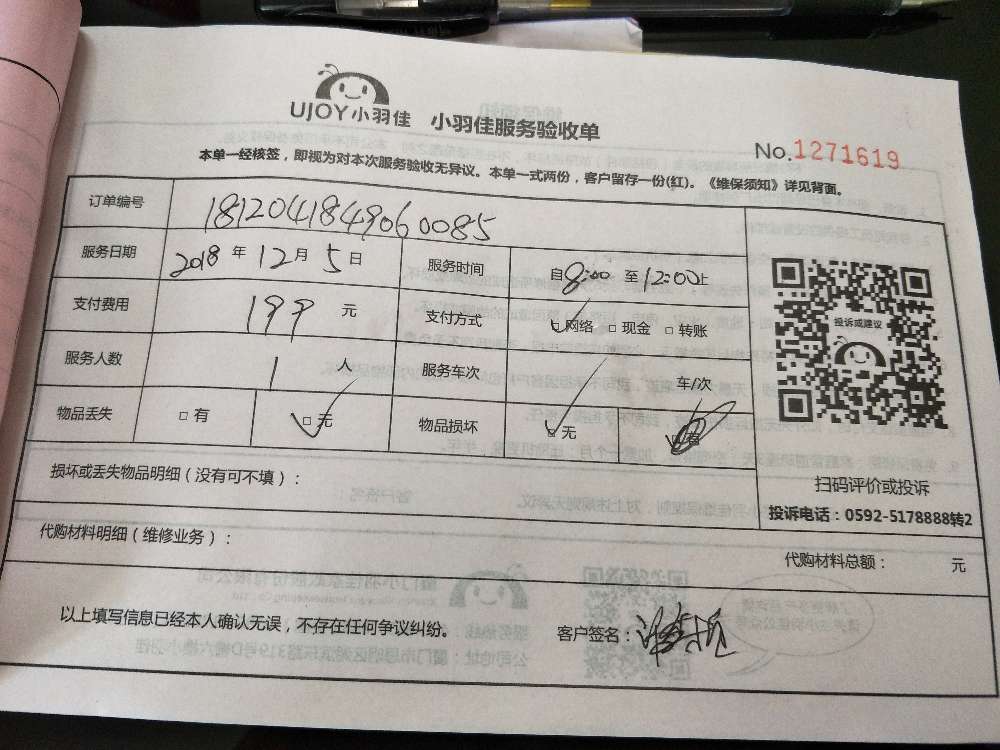 UJOY小羽佳 小羽佳服务验收单
No.1271619
本单一经核签，即视为对本次服务验收无异议。本单一式两份，客户留存一份(红)。《维保须知》详见背面。
订单编号 1812041849060085
服务日期 2018 年 12 月 5 日 服务时间 自 8:00 至 12:00 止
支付费用 199 元 支付方式 □ 网络 □ 现金 □ 转账
服务人数 1 人 服务车次 车/次
物品丢失 □ 有 □ 无 物品损坏 □ 无 □ 有
投诉或建议
扫码评价或投诉
投诉电话：0592-5178888转2
损坏或丢失物品明细（没有可不填）：
代购材料明细（维修业务）：
代购材料总额： 元
以上填写信息已经本人确认无误，不存在任何争议纠纷。 客户签名：